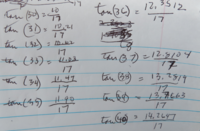 tan(30) = 10/17
tan(31) = 10.21/17
tan(32) =
tan(33) =
tan(34) = 11.47/17
tan(35) = 11.90/17
tan(36) = 12.3512/17
tan(37) = 12.8104/17
tan(38) = 13.2819/17
tan(39) = 13.7663/17
tan(40) = 14.2647/17